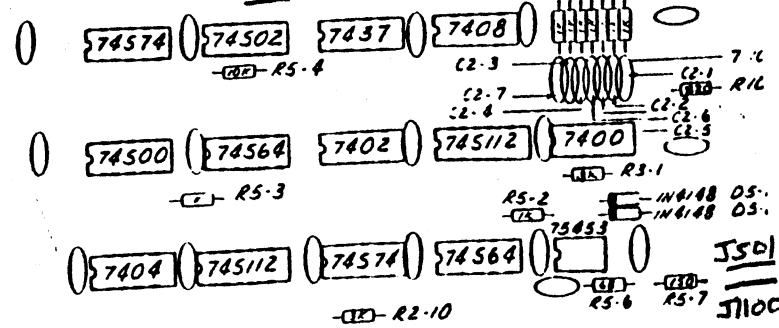 74S74 74S02 7437 7408
R5-4
C2-3
C2-1
R16
C2-7
C2-4
C2-2
C2-6
C2-5
74S00 74S64 7402 74S112 7400
R3-1
R5-3
R5-2
1K
IN4148 D5-
IN4148 D5-
75453
7404 74S112 74S74 74S64
J501
R5-6 R5-7
R2-10